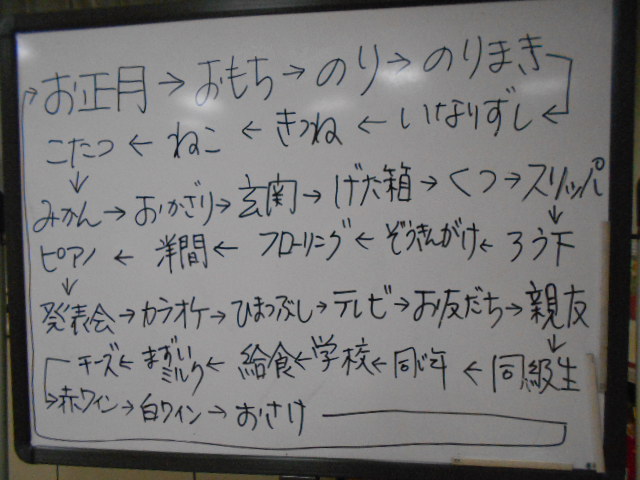 お正月→おもち→のり→のりまき
こたつ←ねこ←きつね←いなりずし
みかん→おかざり→玄関→げた箱→くつ→スリッパ
ピアノ←洋間←フローリング←ぞうきんがけ←ろう下
発表会→カラオケ→ひまつぶし→テレビ→お友だち→親友
チーズ←まずいミルク←給食←学校←同じ年←同級生
赤ワイン→白ワイン→おさけ